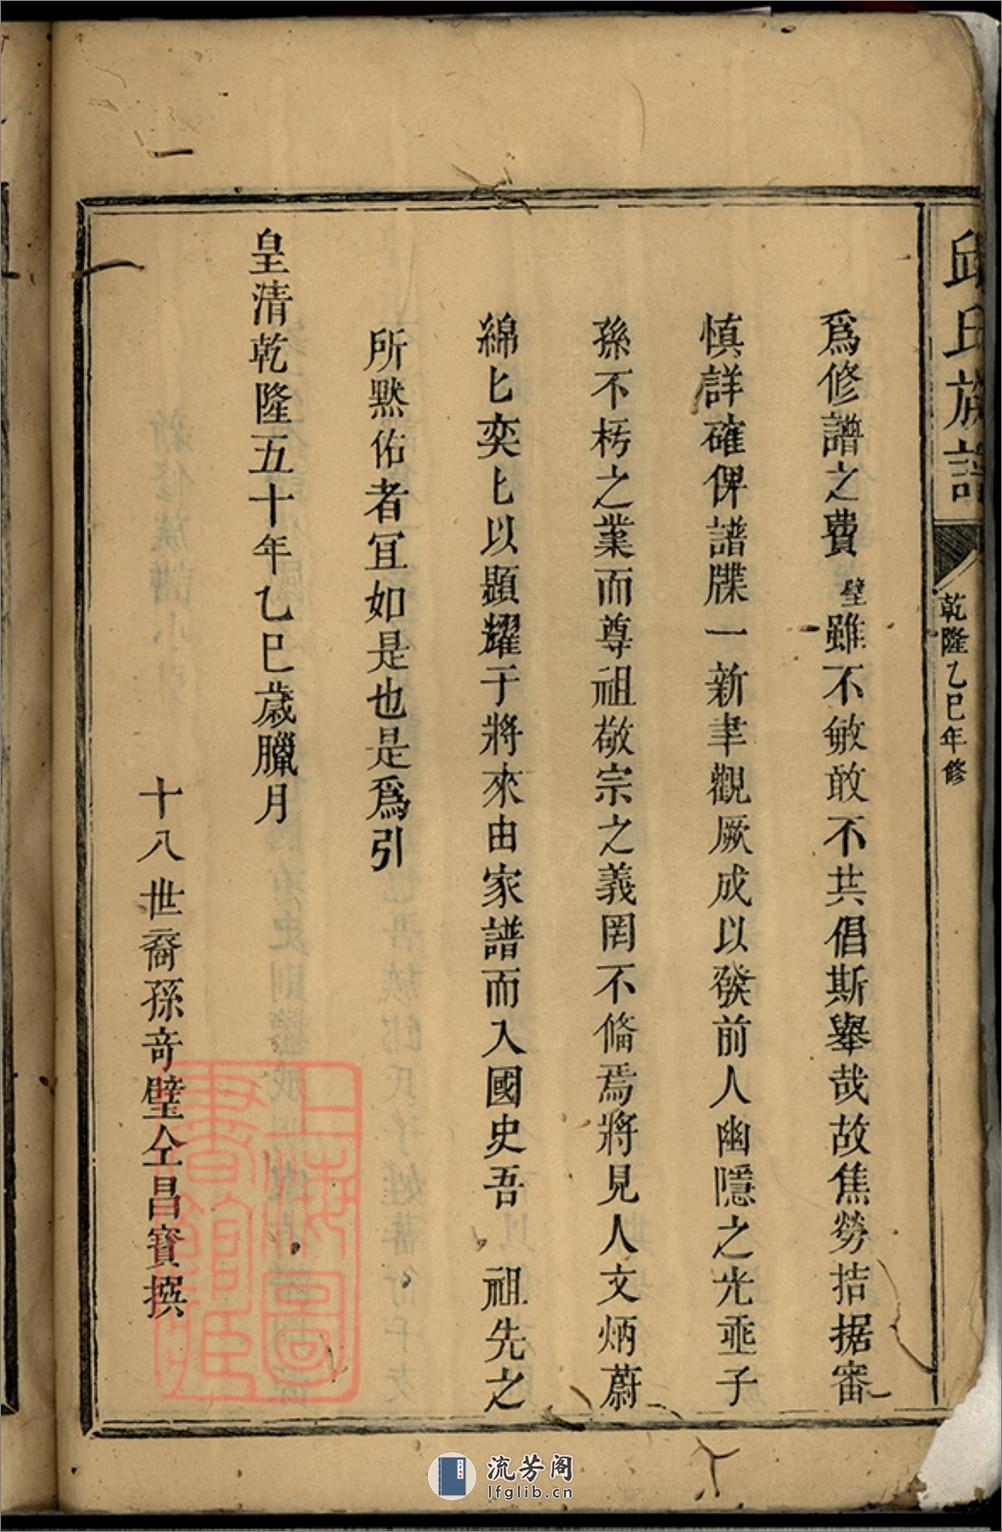 邱氏族譜
乾隆乙巳年修
爲修譜之費璧雖不敏敢不共倡斯舉哉故焦勞拮据審
慎詳確俾譜牒一新聿觀厥成以發前人幽隱之光垂子
孫不朽之業而尊祖敬宗之義罔不俻焉將見人文炳蔚
綿匕奕匕以顯耀于將來由家譜而入國史吾 祖先之
所默佑者冝如是也是爲引
皇清乾隆五十年乙巳歲臘月
十八世裔孫奇璧仝昌賓撰
上海圖書館藏
流芳阁
lfglib.cn